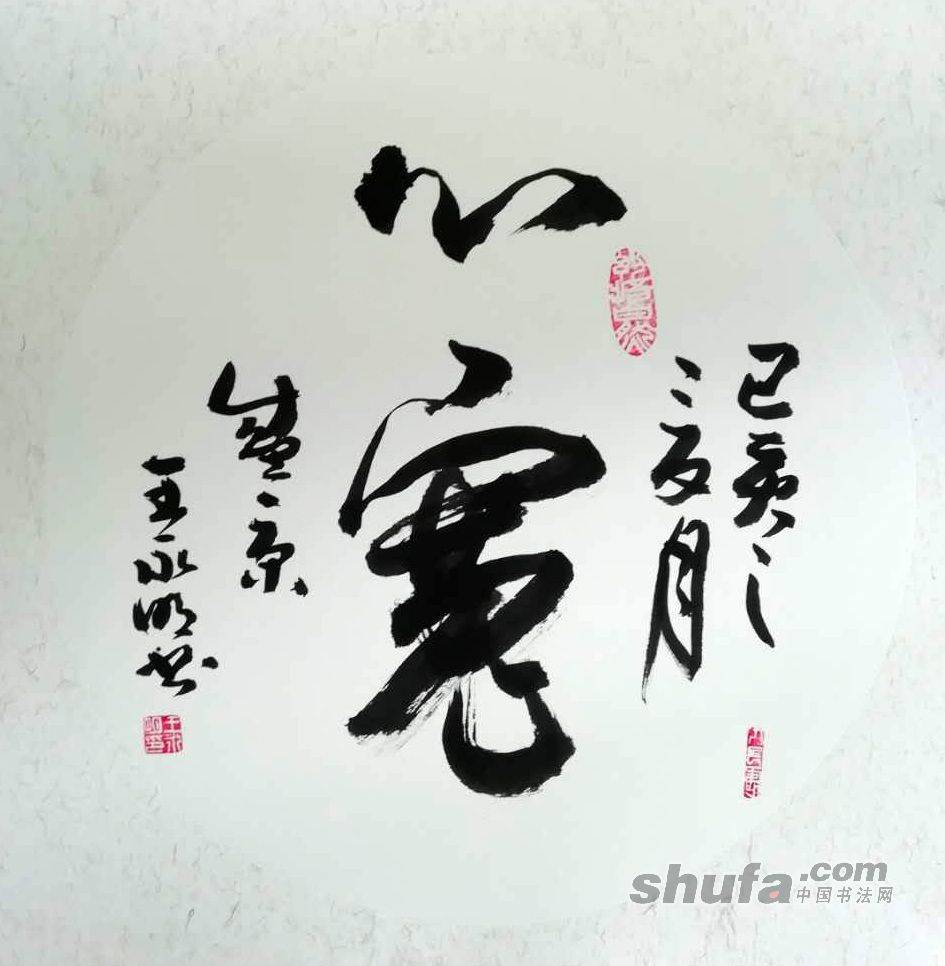 心寬
己亥之
二月
盛京
王永明書
shufa.com
中国书法网